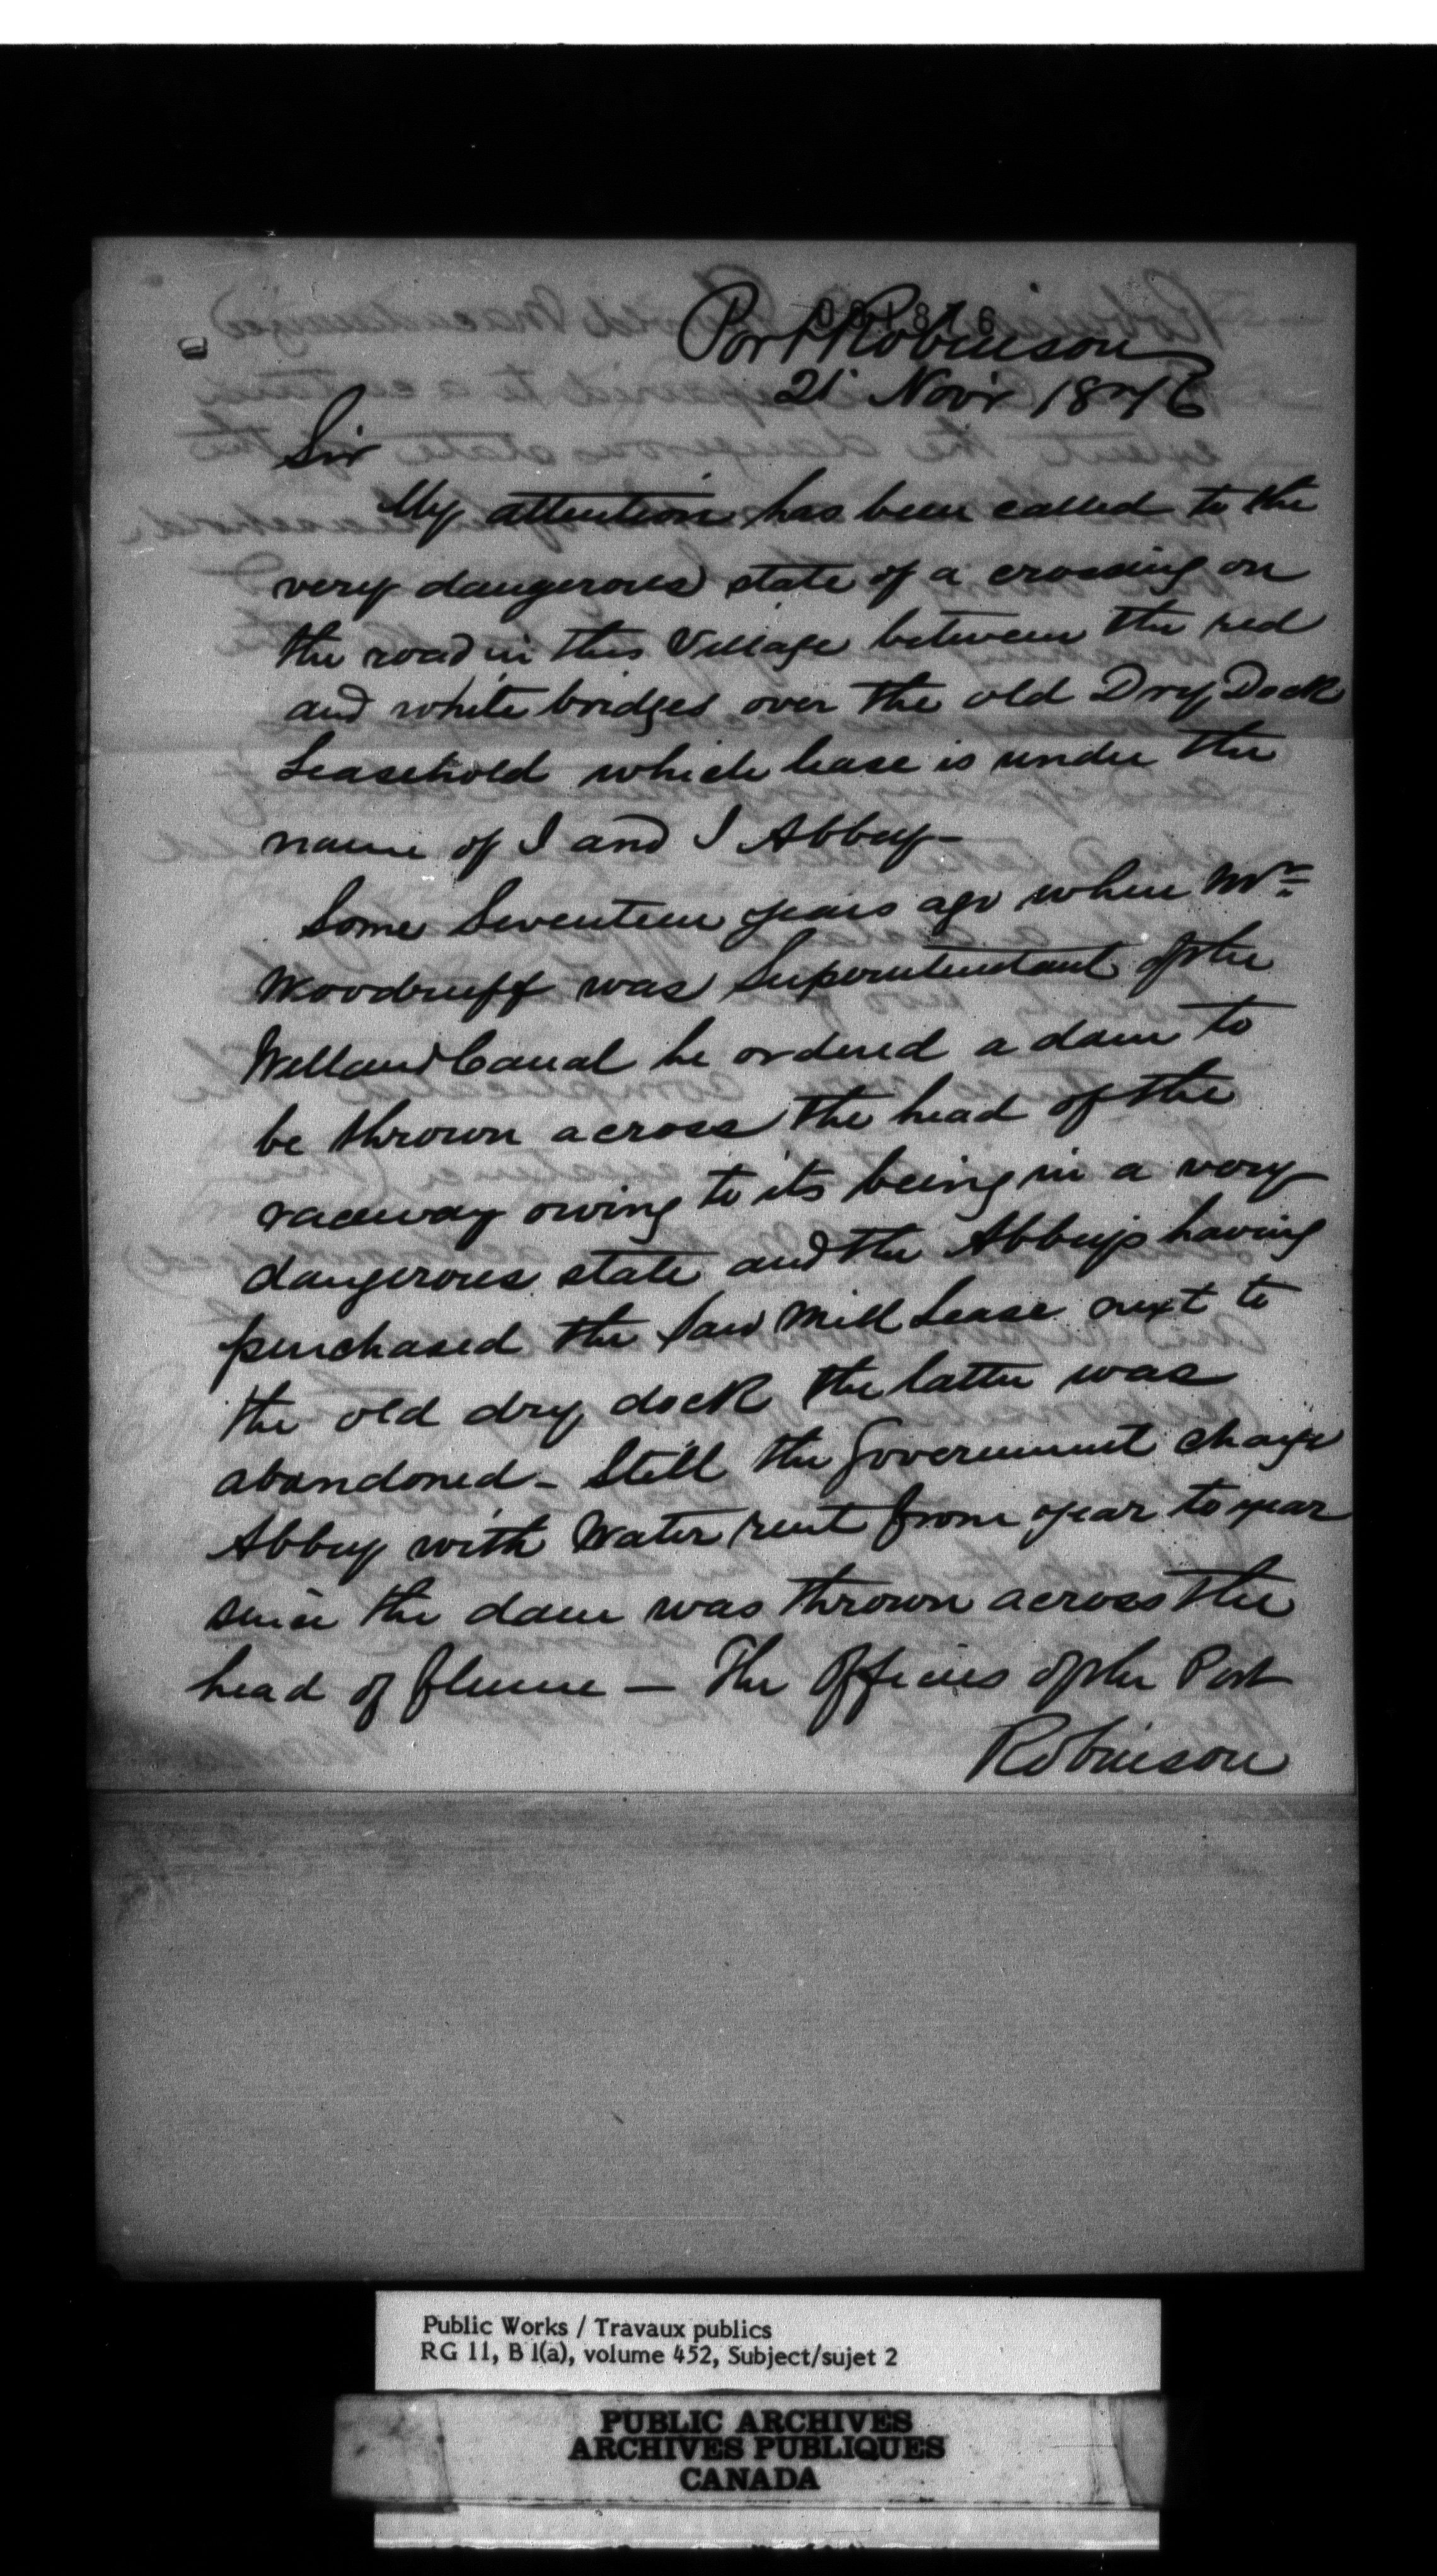 Port Robinson
21 Nov'r 1876
Sir
My attention has been called to the
very dangerous state of a crossing on
the road in this Village between the red
and white bridges over the old Dry Dock
Leasehold which lease is under the
name of J and J Abbey—
Some Seventeen years ago when Mr
Woodruff was Superintendant of the
Welland Canal he ordered a dam to
be thrown across the head of the
raceway owing to its being in a very
dangerous state and the Abbeys having
purchased the Saw Mill Lease next to
the old dry dock the latter was
abandoned — Still the Government charge
Abbey with Water rent from year to year
since the dam was thrown across the
head of flume — The Officers of the Port
Robinson
Public Works / Travaux publics
RG 11, B 1(a), volume 452, Subject/sujet 2
PUBLIC ARCHIVES
ARCHIVES PUBLIQUES
CANADA